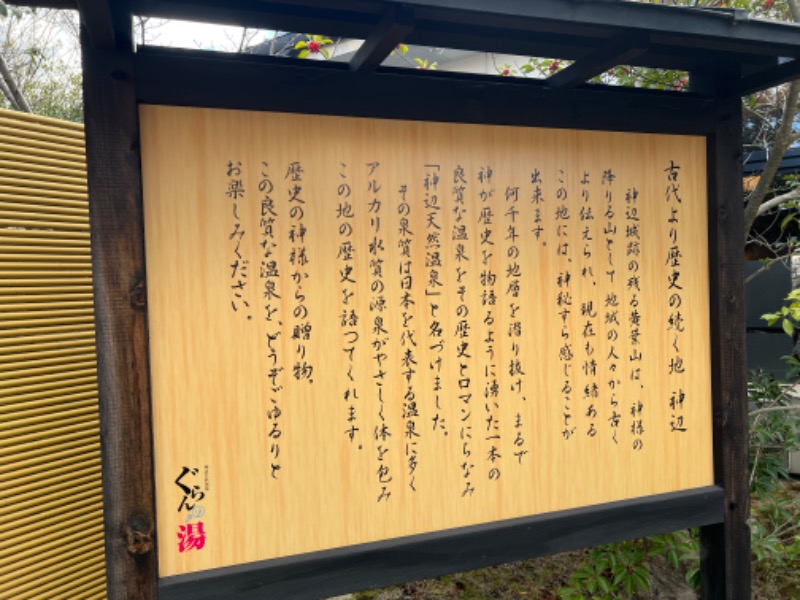 古代より歴史の続く地 神辺
神辺城跡の残る黄葉山は、神様の
降りる山として地域の人々から古く
より伝えられ、現在も情緒ある
この地には、神秘すら感じることが
出来ます。
何千年の地層を潜り抜け、まるで
神が歴史を物語るように湧いた一本の
良質な温泉をその歴史とロマンにちなみ
「神辺天然温泉」と名づけました。
その泉質は日本を代表する温泉に多く
アルカリ水質の源泉がやさしく体を包み
この地の歴史を語ってくれます。
歴史の神様からの贈り物。
この良質な温泉を、どうぞごゆるりと
お楽しみください。
ぐらんの湯